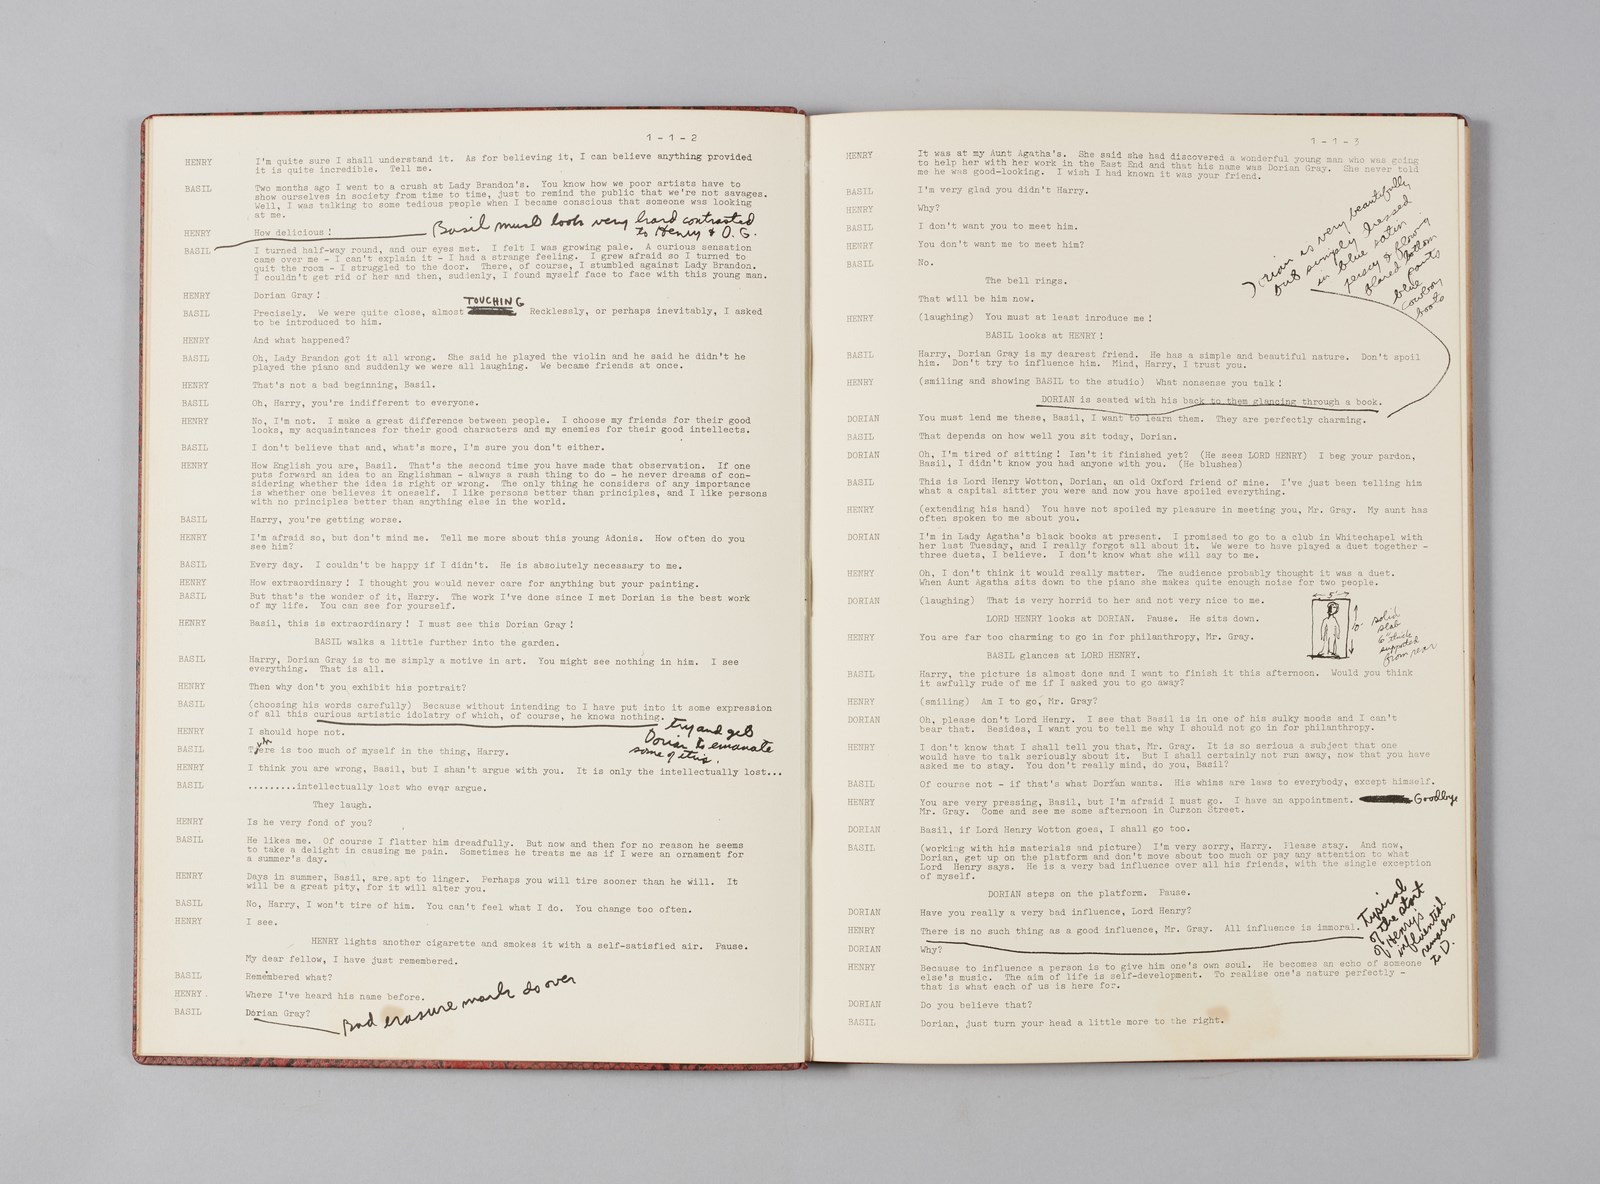 1-1-2
HENRY I'm quite sure I shall understand it. As for believing it, I can believe anything provided
it is quite incredible. Tell me.
BASIL Two months ago I went to a crush at Lady Brandon's. You know how we poor artists have to
show ourselves in society from time to time, just to remind the public that we're not savages.
Well, I was talking to some tedious people when I became conscious that someone was looking
at me.
Basil must look very hard contrasted
to Henry & D.G.
HENRY How delicious!
BASIL I turned half-way round, and our eyes met. I felt I was growing pale. A curious sensation
came over me - I can't explain it - I had a strange feeling. I grew afraid so I turned to
quit the room - I struggled to the door. There, of course, I stumbled against Lady Brandon.
I couldn't get rid of her and then, suddenly, I found myself face to face with this young man.
HENRY Dorian Gray!
TOUCHING
BASIL Precisely. We were quite close, almost Recklessly, or perhaps inevitably, I asked
to be introduced to him.
HENRY And what happened?
BASIL Oh, Lady Brandon got it all wrong. She said he played the violin and he said he didn't he
played the piano and suddenly we were all laughing. We became friends at once.
HENRY That's not a bad beginning, Basil.
BASIL Oh, Harry, you're indifferent to everyone.
HENRY No, I'm not. I make a great difference between people. I choose my friends for their good
looks, my acquaintances for their good characters and my enemies for their good intellects.
BASIL I don't believe that and, what's more, I'm sure you don't either.
HENRY How English you are, Basil. That's the second time you have made that observation. If one
puts forward an idea to an Englishman - always a rash thing to do - he never dreams of con-
sidering whether the idea is right or wrong. The only thing he considers of any importance
is whether one believes it oneself. I like persons better than principles, and I like persons
with no principles better than anything else in the world.
BASIL Harry, you're getting worse.
HENRY I'm afraid so, but don't mind me. Tell me more about this young Adonis. How often do you
see him?
BASIL Every day. I couldn't be happy if I didn't. He is absolutely necessary to me.
HENRY How extraordinary! I thought you would never care for anything but your painting.
BASIL But that's the wonder of it, Harry. The work I've done since I met Dorian is the best work
of my life. You can see for yourself.
HENRY Basil, this is extraordinary! I must see this Dorian Gray!
BASIL walks a little further into the garden.
BASIL Harry, Dorian Gray is to me simply a motive in art. You might see nothing in him. I see
everything. That is all.
HENRY Then why don't you exhibit his portrait?
BASIL (choosing his words carefully) Because without intending to I have put into it some expression
of all this curious artistic idolatry of which, of course, he knows nothing.
try and get
Dorian to emanate
some of this.
HENRY I should hope not.
BASIL There is too much of myself in the thing, Harry.
HENRY I think you are wrong, Basil, but I shan't argue with you. It is only the intellectually lost...
BASIL .........intellectually lost who ever argue.
They laugh.
HENRY Is he very fond of you?
BASIL He likes me. Of course I flatter him dreadfully. But now and then for no reason he seems
to take a delight in causing me pain. Sometimes he treats me as if I were an ornament for
a summer's day.
HENRY Days in summer, Basil, are apt to linger. Perhaps you will tire sooner than he will. It
will be a great pity, for it will alter you.
BASIL No, Harry, I won't tire of him. You can't feel what I do. You change too often.
HENRY I see.
HENRY lights another cigarette and smokes it with a self-satisfied air. Pause.
My dear fellow, I have just remembered.
BASIL Remembered what?
HENRY Where I've heard his name before.
BASIL Dorian Gray?
Bad erasure mark do over
1-1-3
HENRY It was at my Aunt Agatha's. She said she had discovered a wonderful young man who was going
to help her with her work in the East End and that his name was Dorian Gray. She never told
me he was good-looking. I wish I had known it was your friend.
BASIL I'm very glad you didn't Harry.
HENRY Why?
BASIL I don't want you to meet him.
HENRY You don't want me to meet him?
BASIL No.
The bell rings.
That will be him now.
Dorian is very beautifully
but simply dressed
in blue satin
jersey & flowing
flared bottom
blue pants
cowboy
boots
HENRY (laughing) You must at least inroduce me!
BASIL looks at HENRY!
BASIL Harry, Dorian Gray is my dearest friend. He has a simple and beautiful nature. Don't spoil
him. Don't try to influence him. Mind, Harry, I trust you.
HENRY (smiling and showing BASIL to the studio) What nonsense you talk!
DORIAN is seated with his back to them glancing through a book.
DORIAN You must lend me these, Basil, I want to learn them. They are perfectly charming.
BASIL That depends on how well you sit today, Dorian.
DORIAN Oh, I'm tired of sitting! Isn't it finished yet? (He sees LORD HENRY) I beg your pardon,
Basil, I didn't know you had anyone with you. (He blushes)
BASIL This is Lord Henry Wotton, Dorian, an old Oxford friend of mine. I've just been telling him
what a capital sitter you were and now you have spoiled everything.
HENRY (extending his hand) You have not spoiled my pleasure in meeting you, Mr. Gray. My aunt has
often spoken to me about you.
DORIAN I'm in Lady Agatha's black books at present. I promised to go to a club in Whitechapel with
her last Tuesday, and I really forgot all about it. We were to have played a duet together -
three duets, I believe. I don't know what she will say to me.
HENRY Oh, I don't think it would really matter. The audience probably thought it was a duet.
When Aunt Agatha sits down to the piano she makes quite enough noise for two people.
DORIAN (laughing) That is very horrid to her and not very nice to me.
LORD HENRY looks at DORIAN. Pause. He sits down.
5'
solid
slab
6" thick
supported
from rear
HENRY You are far too charming to go in for philanthropy, Mr. Gray.
BASIL glances at LORD HENRY.
BASIL Harry, the picture is almost done and I want to finish it this afternoon. Would you think
it awfully rude of me if I asked you to go away?
HENRY (smiling) Am I to go, Mr. Gray?
DORIAN Oh, please don't Lord Henry. I see that Basil is in one of his sulky moods and I can't
bear that. Besides, I want you to tell me why I should not go in for philanthropy.
HENRY I don't know that I shall tell you that, Mr. Gray. It is so serious a subject that one
would have to talk seriously about it. But I shall certainly not run away, now that you have
asked me to stay. You don't really mind, do you, Basil?
BASIL Of course not - if that's what Dorian wants. His whims are laws to everybody, except himself.
HENRY You are very pressing, Basil, but I'm afraid I must go. I have an appointment. Goodbye
Mr. Gray. Come and see me some afternoon in Curzon Street.
DORIAN Basil, if Lord Henry Wotton goes, I shall go too.
BASIL (working with his materials and picture) I'm very sorry, Harry. Please stay. And now,
Dorian, get up on the platform and don't move about too much or pay any attention to what
Lord Henry says. He is a very bad influence over all his friends, with the single exception
of myself.
DORIAN steps on the platform. Pause.
DORIAN Have you really a very bad influence, Lord Henry?
HENRY There is no such thing as a good influence, Mr. Gray. All influence is immoral.
Typical
of the start
of Henry's
influential
remarks
to D.
DORIAN Why?
HENRY Because to influence a person is to give him one's own soul. He becomes an echo of someone
else's music. The aim of life is self-development. To realise one's nature perfectly -
that is what each of us is here for.
DORIAN Do you believe that?
BASIL Dorian, just turn your head a little more to the right.